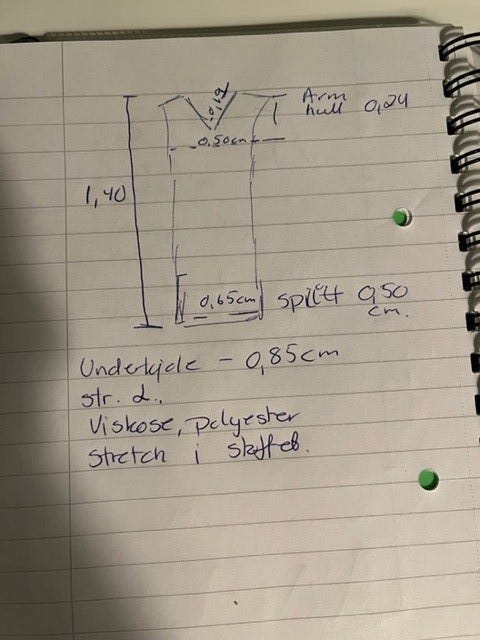 Arm
hull 0,24
0,19
0,50cm
1,40
0,65cm
splitt 0,50
cm.
Underkjole - 0,85cm
str. L.
Viskose, polyester
Stretch i stoffet.